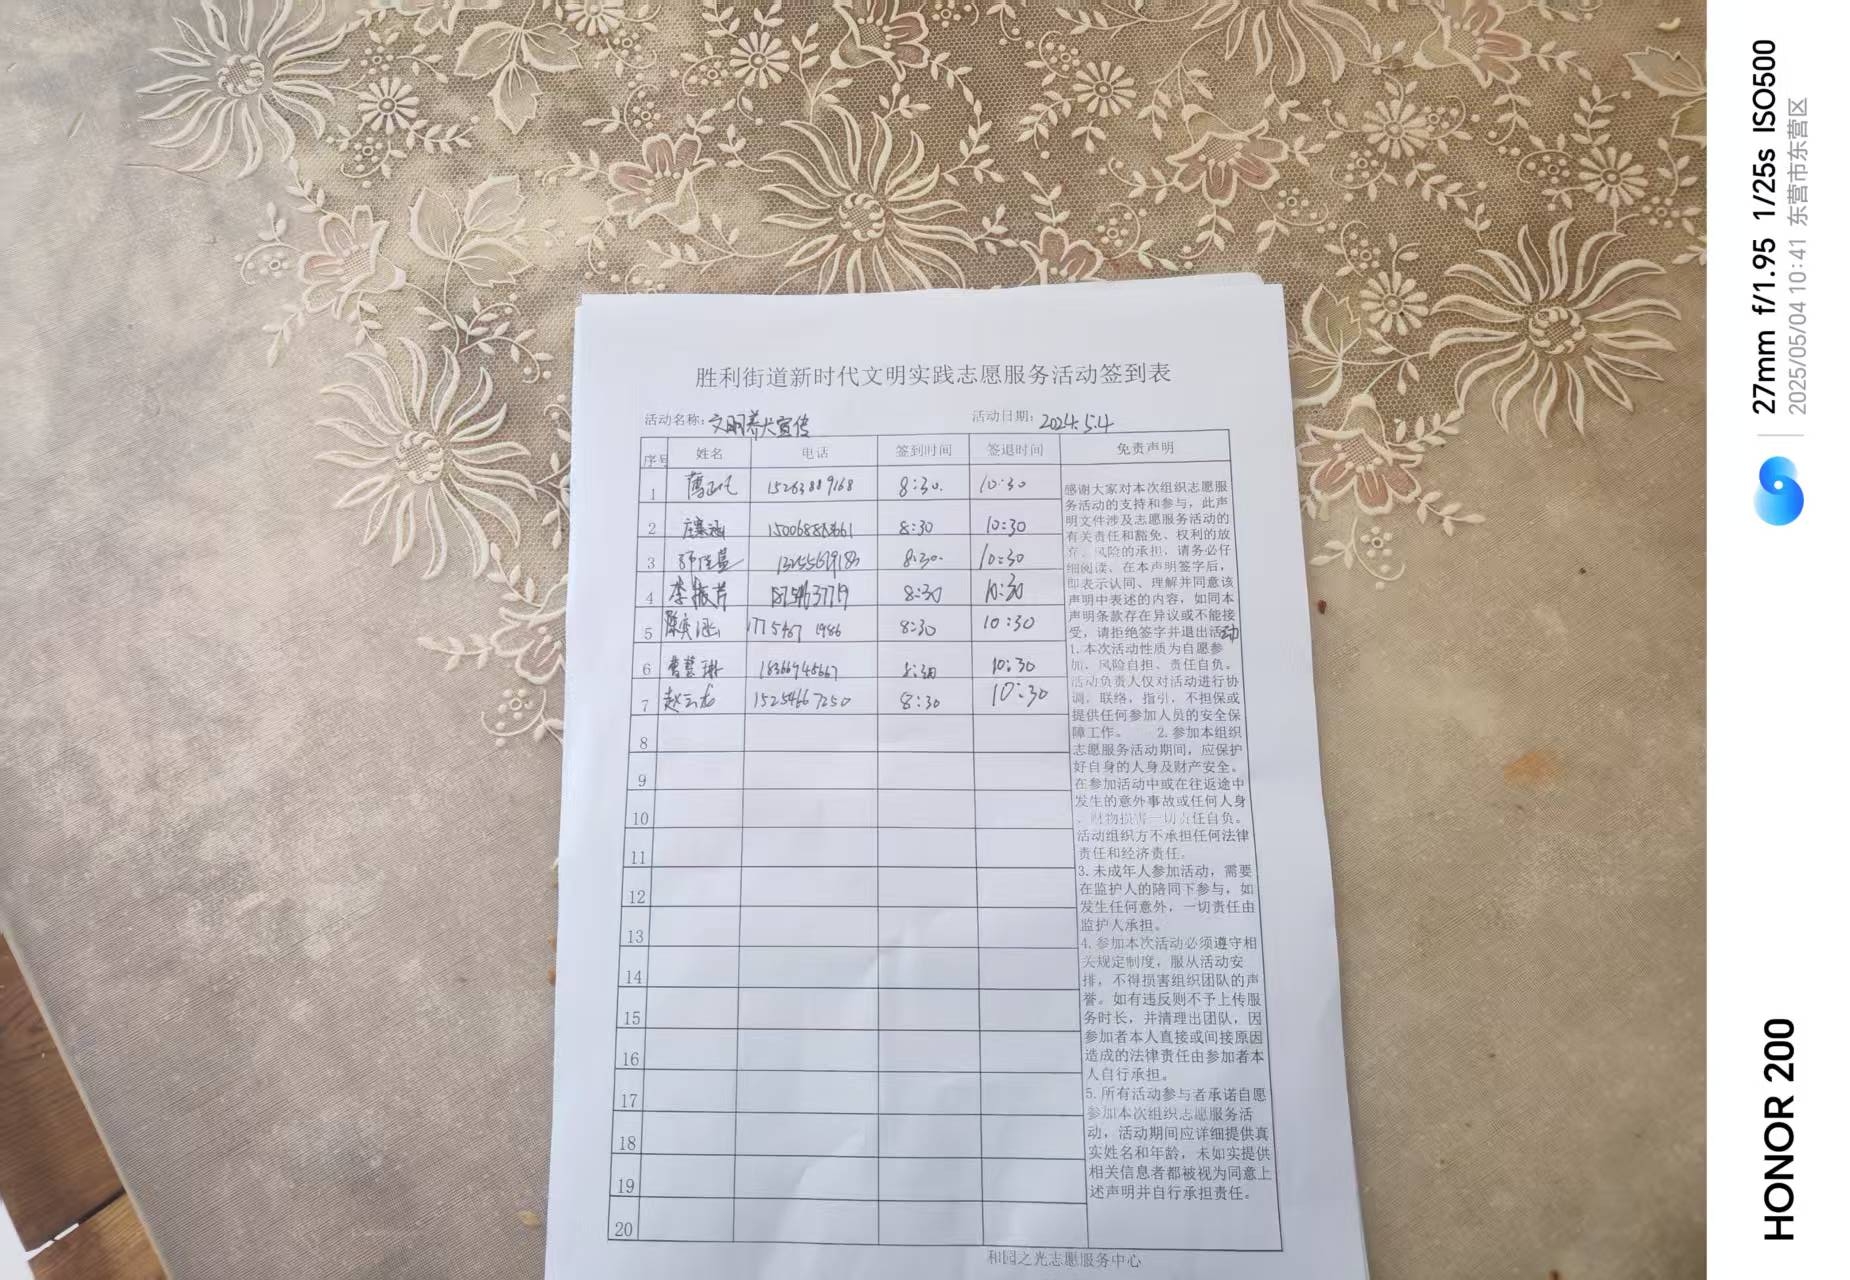 胜利街道新时代文明实践志愿服务活动签到表
活动名称：文明养犬宣传 活动日期：2024.5.4
序号 姓名 电话 签到时间 签退时间 免责声明
1 15263889168 8:30. 10:30
2 8:30 10:30
3 8:30. 10:30
4 李振芹 8:30 10:30
5 陈奕涵 8:30 10:30
6 曹慧琳 18366945667 8:30 10:30
7 赵云龙 15254667250 8:30 10:30
8
9
10
11
12
13
14
15
16
17
18
19
20
感谢大家对本次组织志愿服
务活动的支持和参与，此声
明文件涉及志愿服务活动的
有关责任和豁免、权利的放
弃、风险的承担，请务必仔
细阅读、在本声明签字后，
即表示认同、理解并同意该
声明中表述的内容，如同本
声明条款存在异议或不能接
受，请拒绝签字并退出活动
1.本次活动性质为自愿参
加，风险自担、责任自负。
活动负责人仅对活动进行协
调，联络，指引，不担保或
提供任何参加人员的安全保
障工作。 2.参加本组织
志愿服务活动期间，应保护
好自身的人身及财产安全。
在参加活动中或在往返途中
发生的意外事故或任何人身
、财物损害一切责任自负。
活动组织方不承担任何法律
责任和经济责任。
3.未成年人参加活动，需要
在监护人的陪同下参与，如
发生任何意外，一切责任由
监护人承担。
4.参加本次活动必须遵守相
关规定制度，服从活动安
排，不得损害组织团队的声
誉。如有违反则不予上传服
务时长，并清理出团队，因
参加者本人直接或间接原因
造成的法律责任由参加者本
人自行承担。
5.所有活动参与者承诺自愿
参加本次组织志愿服务活
动，活动期间应详细提供真
实姓名和年龄，未如实提供
相关信息者都被视为同意上
述声明并自行承担责任。
和园之光志愿服务中心
HONOR 200
27mm f/1.95 1/25s ISO500
2025/05/04 10:41 东营市东营区